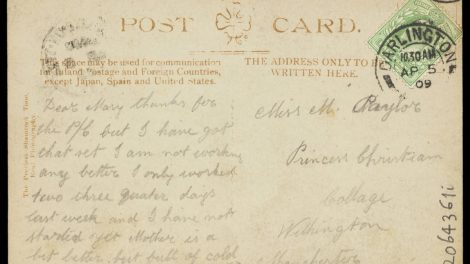 POST CARD.
This space may be used for communication
for Inland Postage and Foreign Countries,
except Japan, Spain and United States.
THE ADDRESS ONLY TO BE
WRITTEN HERE.
DARLINGTON
10.30 AM
AP 5
09
The Premier Skuring's Time.
Real Photography.
Dear Mary thanks for
the P/C but I have got
that set I am not working
any better I only worked
two three quater days
last week and I have not
started yet Mother is a
bit better but full of cold
Miss M. Raylor
Princess Christian
Collage
Withington
Manchester
2064361i